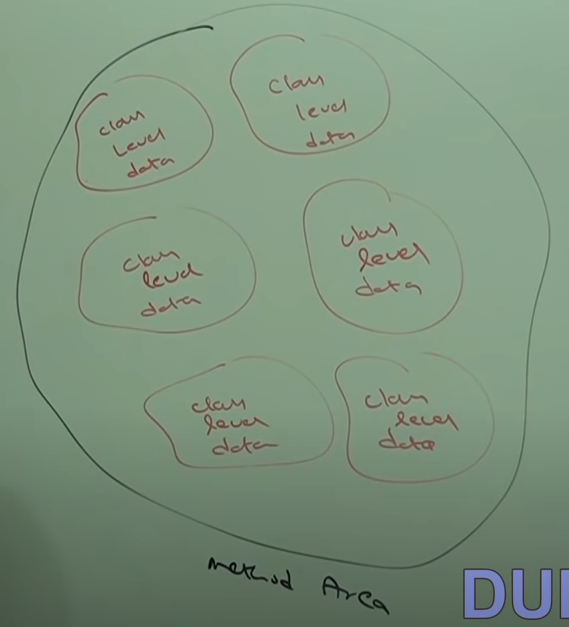 class
level
data
class
Level
data
class
level
data
class
level
data
class
level
data
class
level
data
Method Area
DU